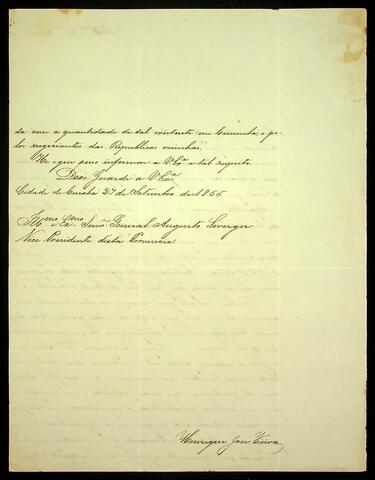 da com a quantidade de sal existente em Corumbá, e pe-
los negociantes das Republicas visinhas.
He o que posso informar a V. Exª a tal respeito.
Deos Guarde a V. Exª
Cidade de Cuiabá 27 de Setembro de 1865.
Illmo. e Exmo. Senr. General Augusto Leverger
Vice Presidente desta Provincia
Henrique José Vieira